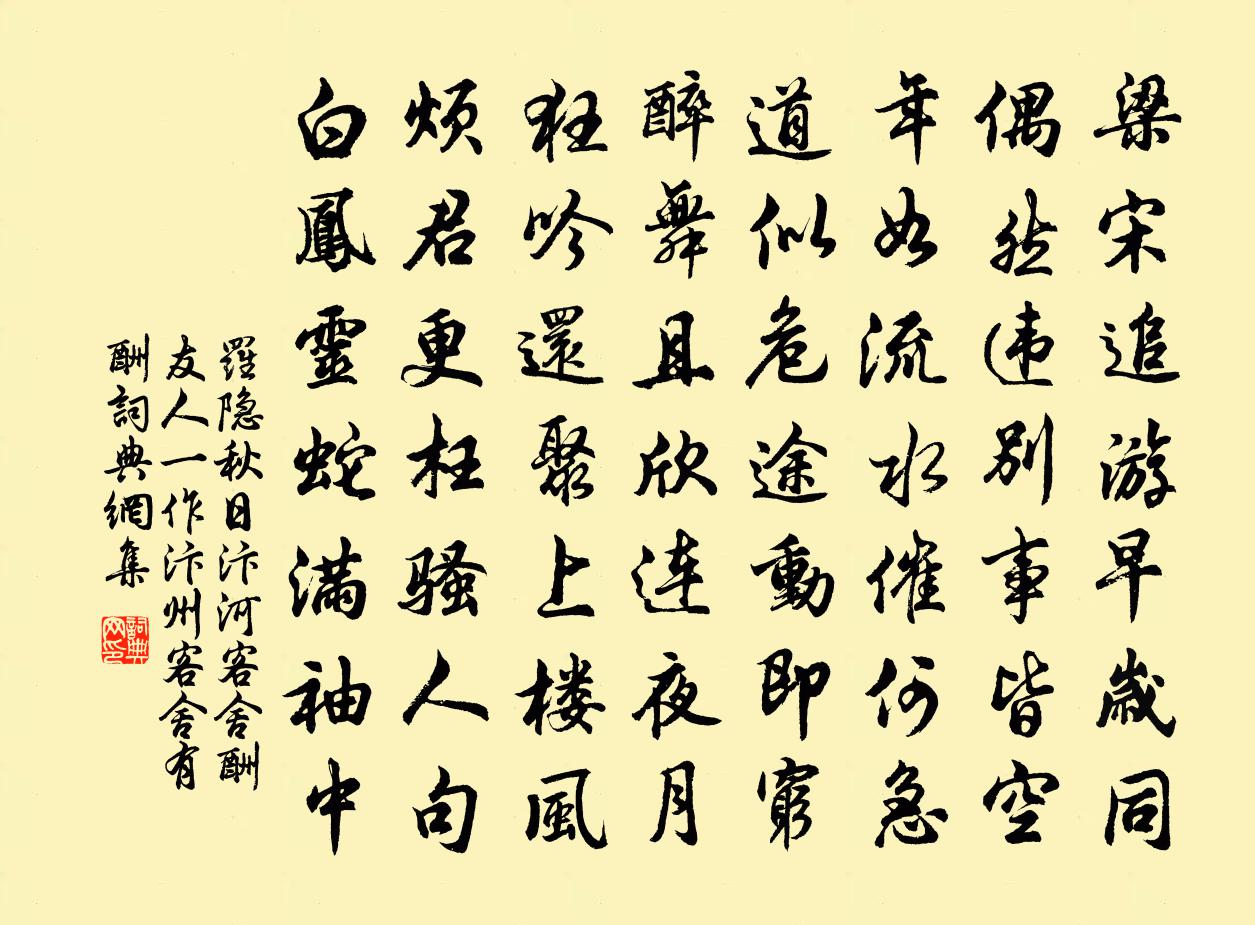 梁宋追游早歲同
偶然违别事皆空
年如流水催何急
道似危途動即窮
醉舞且欣连夜月
狂吟還聚上楼風
烦君更枉骚人句
白鳳靈蛇滿袖中
羅隐秋日汴河客舍酬
友人一作汴州客舍有
酬詞典網集
詞典
网印